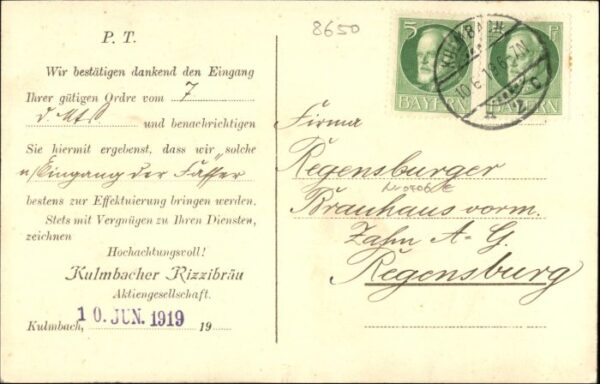 P. T.
Wir bestätigen dankend den Eingang
Ihrer gütigen Ordre vom 7
d. Mts. und benachrichtigen
Sie hiermit ergebenst, dass wir solche
n/Eingang der Fässer
bestens zur Effektuierung bringen werden.
Stets mit Vergnügen zu Ihren Diensten,
zeichnen
Hochachtungsvoll!
Kulmbacher Rizzibräu
Aktiengesellschaft.
Kulmbach, 10. JUN. 1919 19
8650
5
BAYERN
BAYERN
KULMBACH
Firma
Regensburger
Brauhaus vorm.
Zahn A-G.
Regensburg